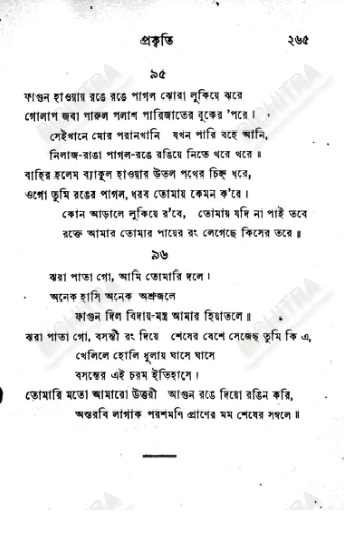 প্রকৃতি ২৬৫
৯৫
ফাগুন হাওয়ায় রঙে রঙে পাগল ঝোরা লুকিয়ে ঝরে
গোলাপ জবা পারুল পলাশ পারিজাতের বুকের 'পরে।
সেইখানে মোর পরানখানি যখন পারি বহে আনি,
নিলাজ-রাঙা পাগল-রঙে রঙিয়ে নিতে থরে থরে॥
বাহির হলেম ব্যাকুল হাওয়ার উতল পথের চিহ্ন ধরে,
ওগো তুমি রঙের পাগল, ধরব তোমায় কেমন ক'রে।
কোন আড়ালে লুকিয়ে র'বে, তোমায় যদি না পাই তবে
রক্তে আমার তোমার পায়ের রং লেগেছে কিসের তরে॥
৯৬
ঝরা পাতা গো, আমি তোমারি দলে।
অনেক হাসি অনেক অশ্রুজলে
ফাগুন দিল বিদায়-মন্ত্র আমার হিয়াতলে॥
ঝরা পাতা গো, বসন্তী রং দিয়ে শেষের বেশে সেজেছ তুমি কি এ,
খেলিলে হোলি ধূলায় ঘাসে ঘাসে
বসন্তের এই চরম ইতিহাসে।
তোমারি মতো আমারো উত্তরী আগুন রঙে দিয়ো রঙিন করি,
অস্তরবি লাগাক পরশমণি প্রাণের মম শেষের সম্বলে॥
BICHITRA